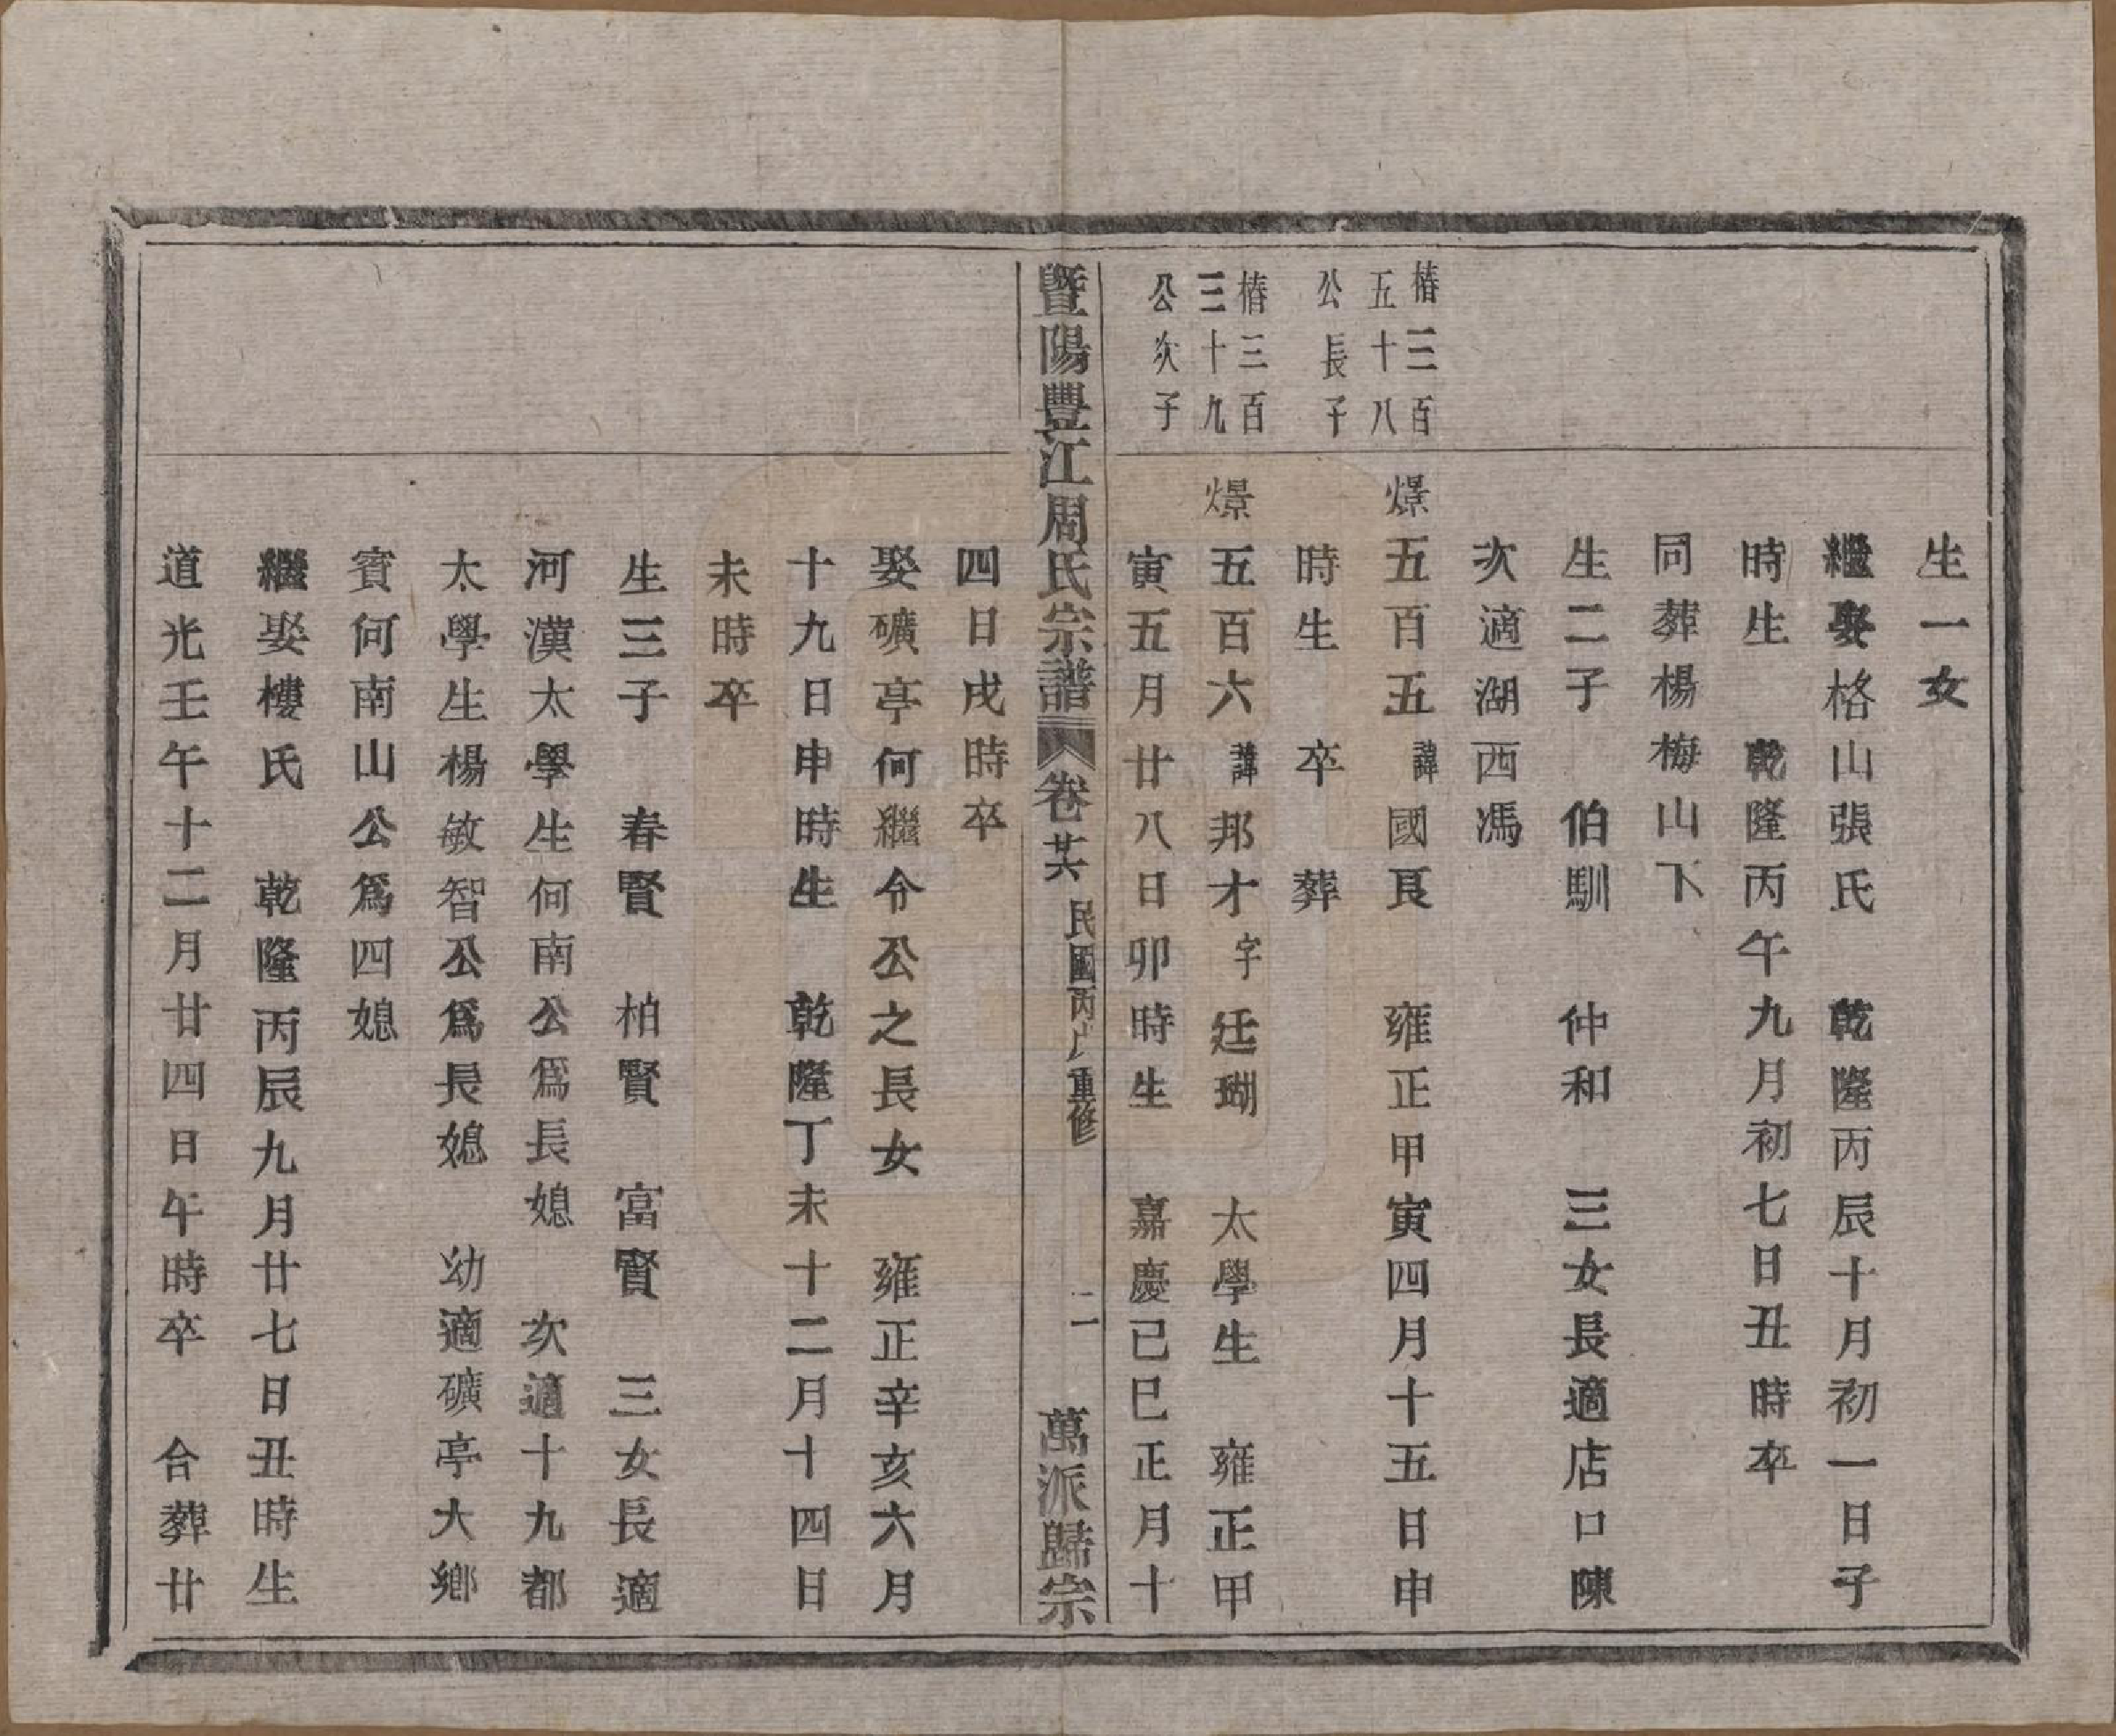 生一女
繼娶格山張氏　乾隆丙辰十月初一日子
時生　乾隆丙午九月初七日丑時卒
同葬楊梅山下
生二子　伯馴　仲和　三女長適店口陳
次適湖西馮
椿三百
五十八
公長子
㬌五百五諱國良　雍正甲寅四月十五日申
時生　卒　葬
椿三百
三十九
公次子
㬌五百六諱邦才字廷瑚　太學生　雍正甲
寅五月廿八日卯時生　嘉慶己巳正月十
暨陽豐江周氏宗譜　卷廿六　民國丙戌重修　二　萬派歸宗
四日戌時卒
娶礦亭何繼令公之長女　雍正辛亥六月
十九日申時生　乾隆丁未十二月十四日
未時卒
生三子　春賢　柏賢　富賢　三女長適
河漢太學生何南公爲長媳　次適十九都
太學生楊敏智公爲長媳　幼適礦亭大鄉
賓何南山公爲四媳
繼娶樓氏　乾隆丙辰九月廿七日丑時生
道光壬午十二月廿四日午時卒　合葬廿